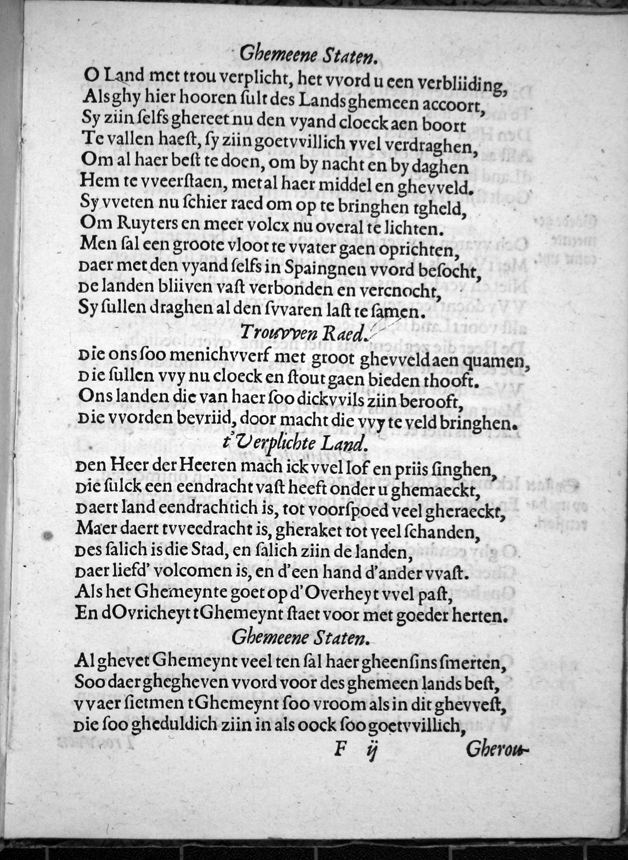 Ghemeene Staten.
O Land met trou verplicht, het vvord u een verbliiding,
Als ghy hier hooren ſult des Lands ghemeen accoort,
Sy ziin ſelfs ghereet nu den vyand cloeck aen boort
Te vallen haeſt, ſy ziin goetvvillich vvel verdraghen,
Om al haer beſt te doen, om by nacht en by daghen
Hem te vveerſtaen, met al haer middel en ghevveld.
Sy vveten nu ſchier raed om op te bringhen tgheld,
Om Ruyters en meer volcx nu overal te lichten.
Men ſal een groote vloot te vvater gaen oprichten,
Daer met den vyand ſelfs in Spaingnen vvord beſocht,
De landen bliiven vaſt verbonden en vercnocht,
Sy ſullen draghen al den ſvvaren laſt te ſamen.
Trouvven Raed.
Die ons ſoo menichvverf met groot ghevveld aen quamen,
Die ſullen vvy nu cloeck en ſtout gaen bieden thooft.
Ons landen die van haer ſoo dickvvils ziin berooft,
Die vvorden bevriid, door macht die vvy te veld bringhen.
t'Verplichte Land.
Den Heer der Heeren mach ick vvel lof en priis ſinghen,
Die ſulck een eendracht vaſt heeft onder u ghemaeckt,
Daert land eendrachtich is, tot voorſpoed veel gheraeckt,
Maer daert tvveedracht is, gheraket tot veel ſchanden,
Des ſalich is die Stad, en ſalich ziin de landen,
Daer liefd' volcomen is, en d'een hand d'ander vvaſt.
Als het Ghemeynte goet op d'Overheyt vvel paſt,
En dOvricheyt tGhemeynt ſtaet voor met goeder herten.
Ghemeene Staten.
Al ghevet Ghemeynt veel ten ſal haer gheenſins ſmerten,
Soo daer ghegheven vvord voor des ghemeen lands beſt,
vvaer ſietmen tGhemeynt ſoo vroom als in dit ghevveſt,
Die ſoo gheduldich ziin in als oock ſoo goetvvillich,
F ij Gherou-